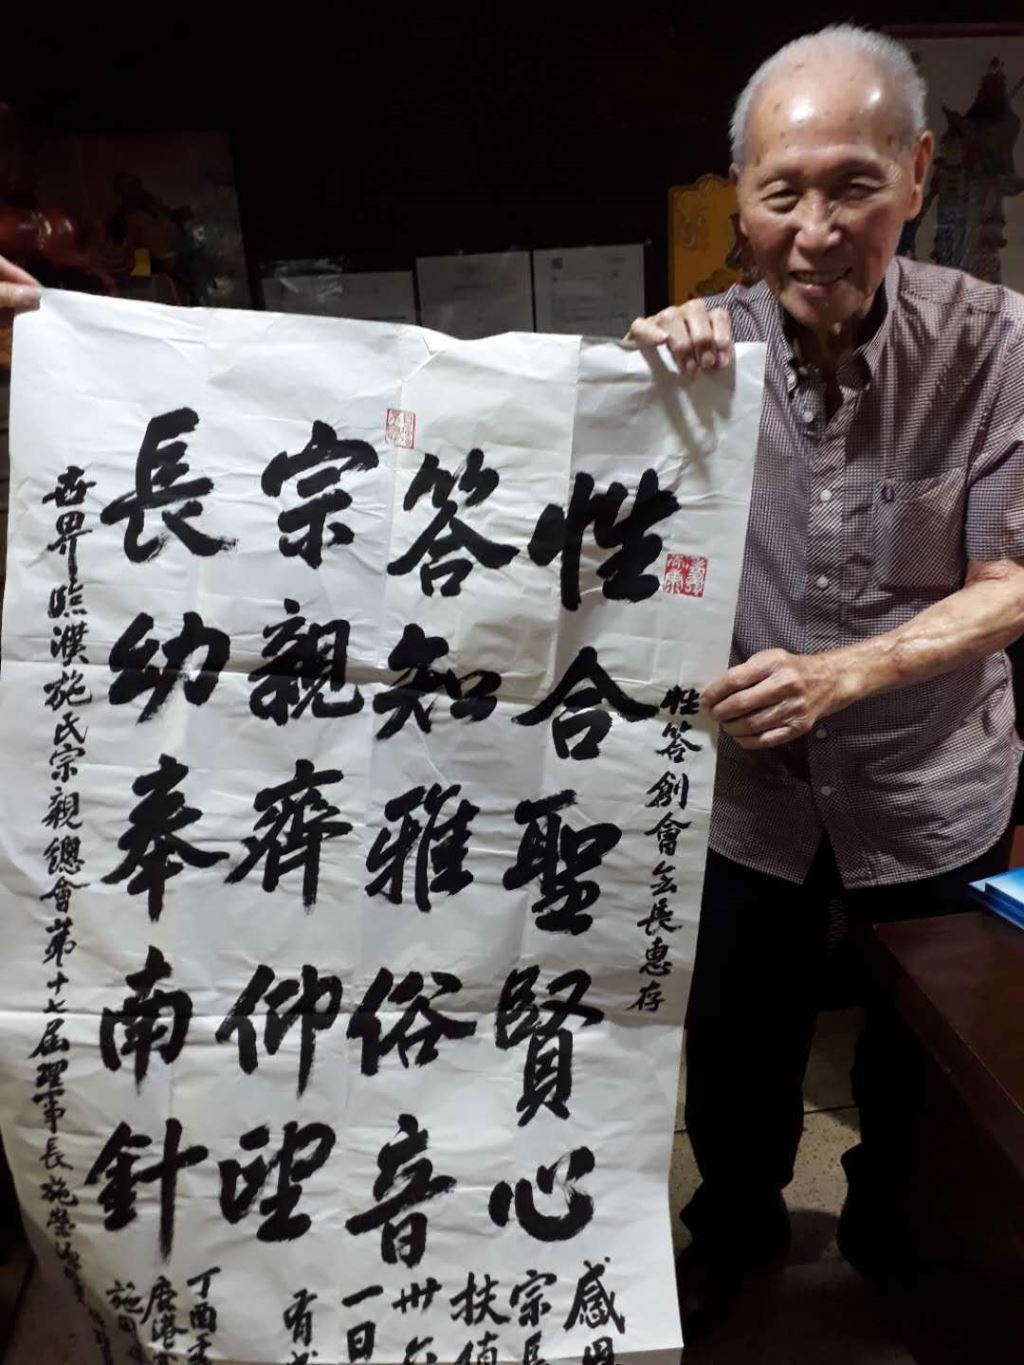 性答創會會長惠存
性合聖賢心
答知雅俗音
宗親齊仰望
長幼奉南針
感恩
宗長
扶
卅六
一日
有
丁酉
鹿港
施
世界臨濮施氏宗親總會第十七屆理事長施